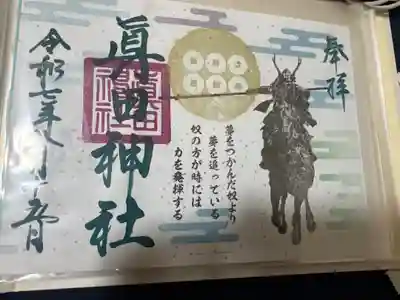 奉拝
夢をつかんだ奴より
夢を追っている
奴の方が時には
力を発揮する
眞田神社
令和七年